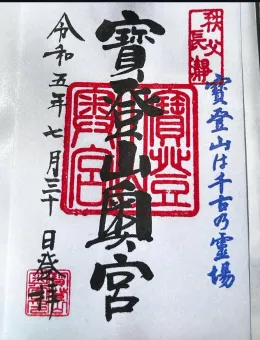 秩父
長瀞
寶登山は千古乃靈場
寶登山奥宮
寶登
山
奥宮
令和五年七月三十日登拝